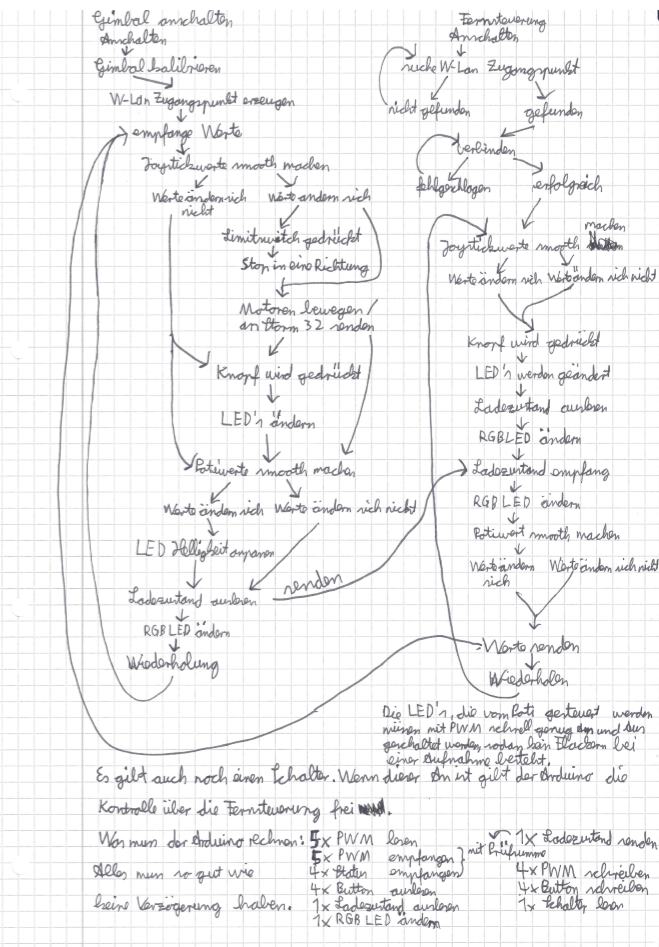 Gimbal anschalten
Anschalten
Gimbal kalibrieren
W-Lan Zugangspunkt erzeugen
empfange Werte
Joystickwerte smooth machen
Werte ändern sich nicht
Werte ändern sich
Limitswitch gedrückt
Stop in eine Richtung
Motoren bewegen /
an Storm 32 senden
Knopf wird gedrückt
LED's ändern
Potiwerte smooth machen
Werte ändern sich
Werte ändern sich nicht
LED Helligkeit anpassen
Ladezustand auslesen
senden
RGB LED ändern
Wiederholung
Fernsteuerung
Anschalten
suche W-Lan Zugangspunkt
nicht gefunden
gefunden
verbinden
fehlgeschlagen
erfolgreich
Joystickwerte smooth machen
Werte ändern sich
Werte ändern sich nicht
Knopf wird gedrückt
LED's werden geändert
Ladezustand auslesen
RGB LED ändern
Ladezustand empfang
RGB LED ändern
Potiwert smooth machen
Werte ändern
sich
Werte ändern sich nicht
Werte senden
Wiederholen
Die LED's, die vom Poti gesteuert werden
müssen mit PWM schnell genug an und aus
geschaltet werden, sodas kein Flackern bei
einer Aufnahme besteht.
Es gibt auch noch einen Schalter. Wenn dieser An ist gibt der Arduino die
Kontrolle über die Fernsteuerung frei.
Was muss der Arduino rechnen:
5x PWM lesen
5x PWM empfangen
4x Status empfangen
mit Prüfsumme
4x Button auslesen
1x Ladezustand auslesen
1x RGB LED ändern
1x Ladezustand senden
4x PWM schreiben
4x Button schreiben
1x Schalter lesen
Alles muss so gut wie
keine Verzögerung haben.